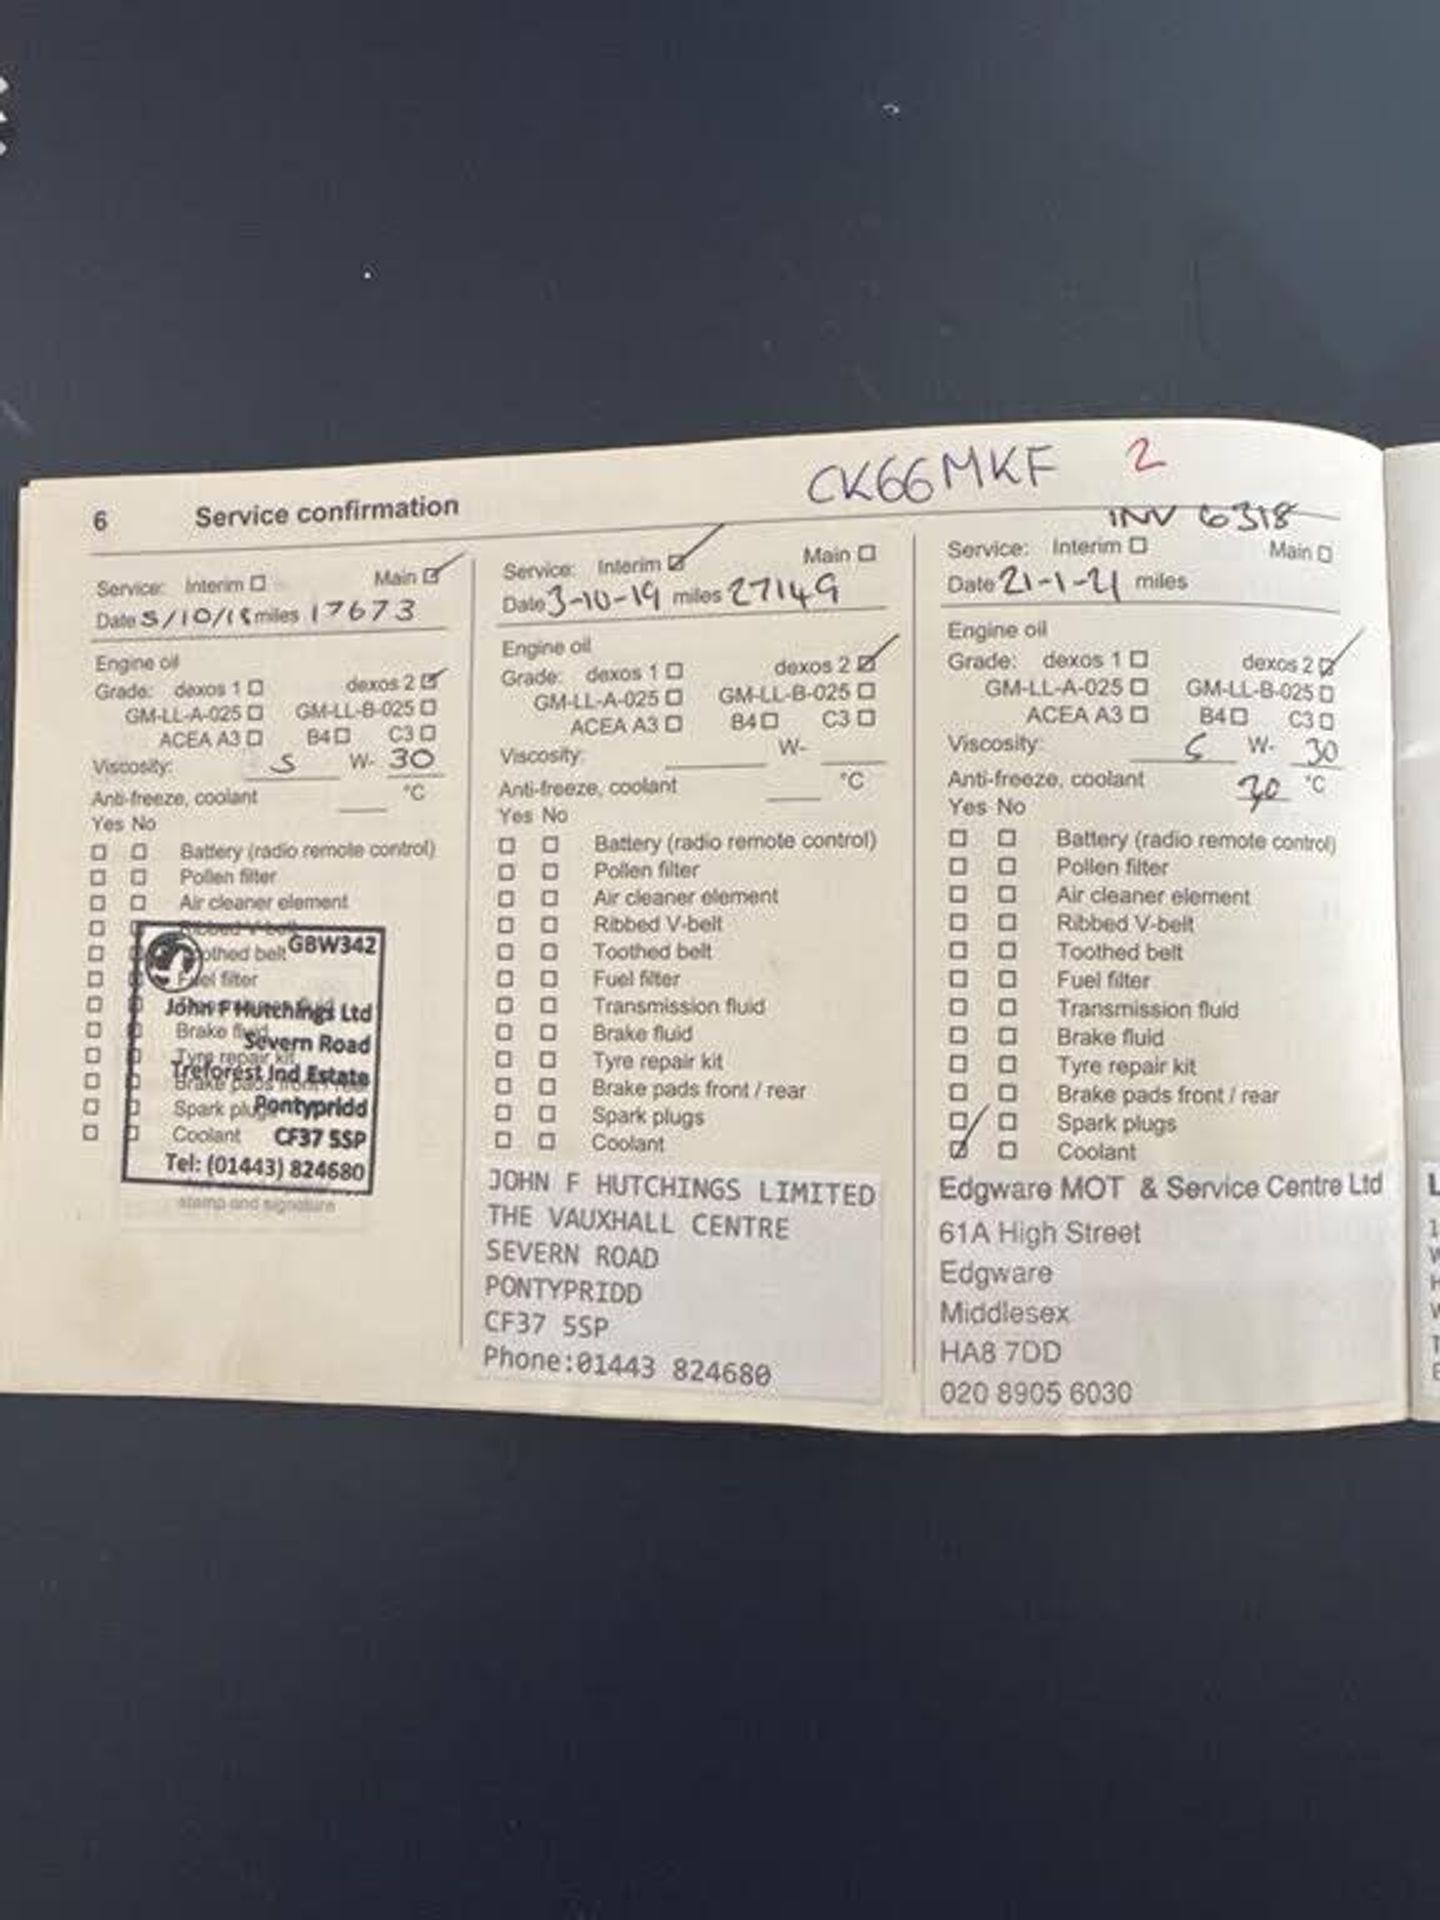 CK66MKF 2
6 Service confirmation
INV 6318
Service: Interim Main
Date 5/10/18 miles 17673
Engine oil
Grade: dexos 1 dexos 2
GM-LL-A-025 GM-LL-B-025
ACEA A3 B4 C3
Viscosity: 5 W- 30
Anti-freeze, coolant °C
Yes No
Battery (radio remote control)
Pollen filter
Air cleaner element
Ribbed V-belt
Toothed belt
Fuel filter
Brake fluid
Tyre repair kit
Brake pads front / rear
Spark plugs
Coolant
GBW342
John F Hutchings Ltd
Severn Road
Treforest Ind Estate
Pontypridd
CF37 5SP
Tel: (01443) 824680
stamp and signature
Service: Interim Main
Date 3-10-19 miles 27149
Engine oil
Grade: dexos 1 dexos 2
GM-LL-A-025 GM-LL-B-025
ACEA A3 B4 C3
Viscosity: W-
Anti-freeze, coolant °C
Yes No
Battery (radio remote control)
Pollen filter
Air cleaner element
Ribbed V-belt
Toothed belt
Fuel filter
Transmission fluid
Brake fluid
Tyre repair kit
Brake pads front / rear
Spark plugs
Coolant
JOHN F HUTCHINGS LIMITED
THE VAUXHALL CENTRE
SEVERN ROAD
PONTYPRIDD
CF37 5SP
Phone:01443 824680
Service: Interim Main
Date 21-1-21 miles
Engine oil
Grade: dexos 1 dexos 2
GM-LL-A-025 GM-LL-B-025
ACEA A3 B4 C3
Viscosity: 5 W- 30
Anti-freeze, coolant 30 °C
Yes No
Battery (radio remote control)
Pollen filter
Air cleaner element
Ribbed V-belt
Toothed belt
Fuel filter
Transmission fluid
Brake fluid
Tyre repair kit
Brake pads front / rear
Spark plugs
Coolant
Edgware MOT & Service Centre Ltd
61A High Street
Edgware
Middlesex
HA8 7DD
020 8905 6030